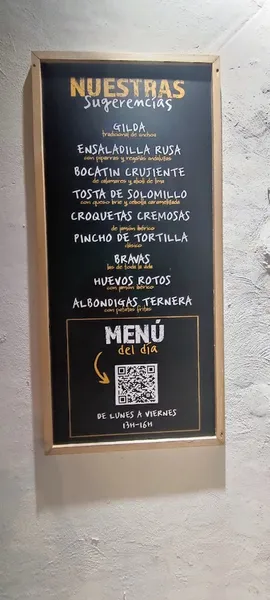 NUESTRAS
Sugerencias
GILDA
tradicional de anchoa
ENSALADILLA RUSA
con piparras y regañás andaluzas
BOCATIN CRUJIENTE
de calamares y alioli de lima
TOSTA DE SOLOMILLO
con queso brie y cebolla caramelizada
CROQUETAS CREMOSAS
de jamón ibérico
PINCHO DE TORTILLA
clásico
BRAVAS
las de toda la vida
HUEVOS ROTOS
con jamón ibérico
ALBONDIGAS TERNERA
con patatas fritas
MENÚ
del día
DE LUNES A VIERNES
13H-16H